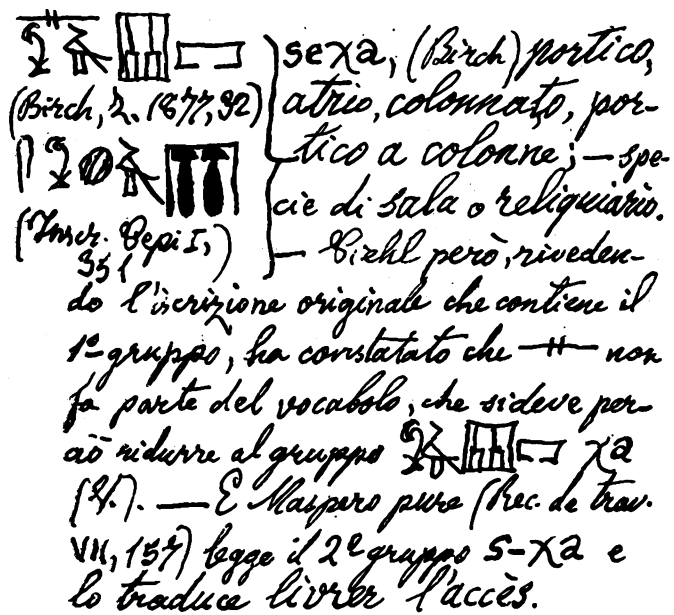 seχa, (Birch) portico,
(Birch, Z. 1877, 32) atrio, colonnato, por-
tico a colonne; — spe-
cie di sala o reliquiario.
(Inscr. Pepi I, 351) — Piehl però, riveden-
do l'iscrizione originale che contiene il
1º gruppo, ha constatato che non
fa parte del vocabolo, che si deve per-
ciò ridurre al gruppo χa
(V.). — E Maspero pure (Rec. de trav.
VII, 157) legge il 2º gruppo s-χa e
lo traduce livrer l'accès.